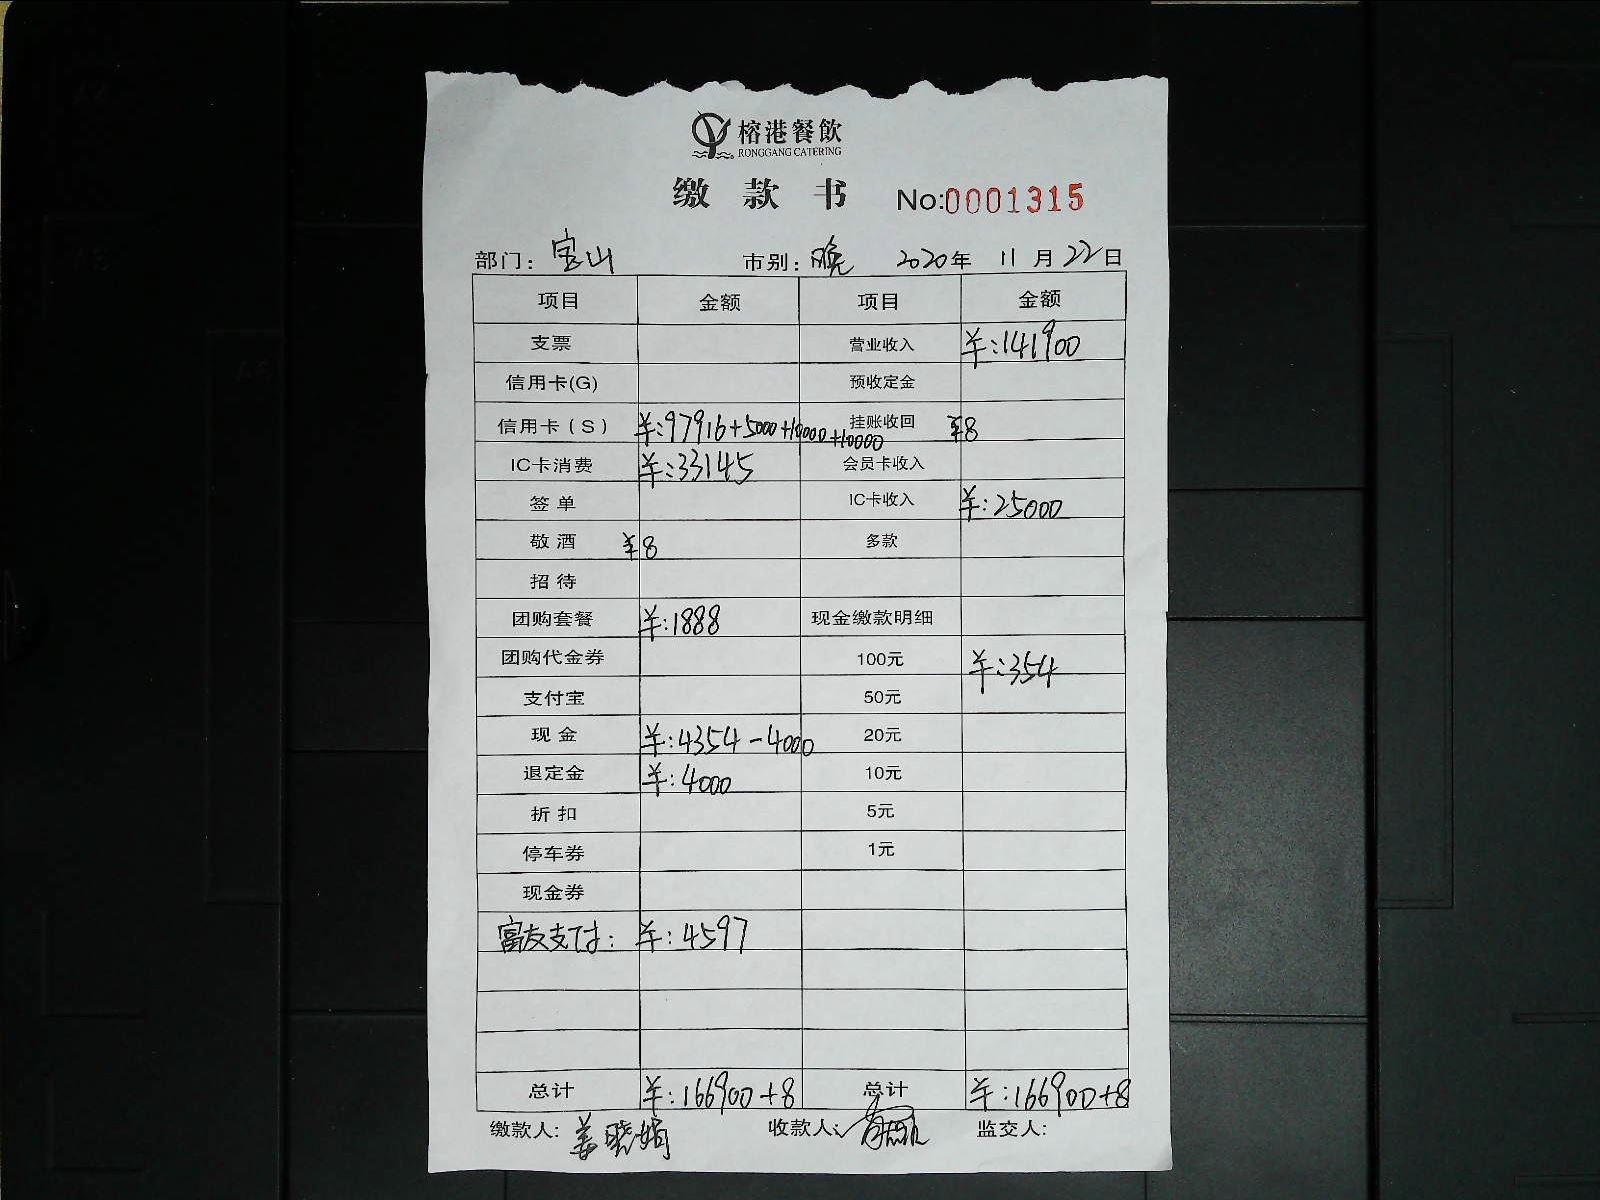 榕港餐飲
RONGGANG CATERING
缴 款 书 No:0001315
部门：宝山 市别：晚 2020年 11月22日
项目 金额 项目 金额
支票 营业收入 ¥:141900
信用卡(G) 预收定金
信用卡（S） ¥:97916+5000+10000+10000 挂账收回 ¥8
IC卡消费 ¥:33145 会员卡收入
签 单 IC卡收入 ¥:25000
敬 酒 ¥8 多款
招 待
团购套餐 ¥:1888 现金缴款明细
团购代金券 100元 ¥:354
支付宝 50元
现 金 ¥:4354-4000 20元
退定金 ¥:4000 10元
折 扣 5元
停车券 1元
现金券
富友支付: ¥:4597
总计 ¥:166900+8 总计 ¥:166900+8
缴款人: 姜晓娟 收款人: 监交人: